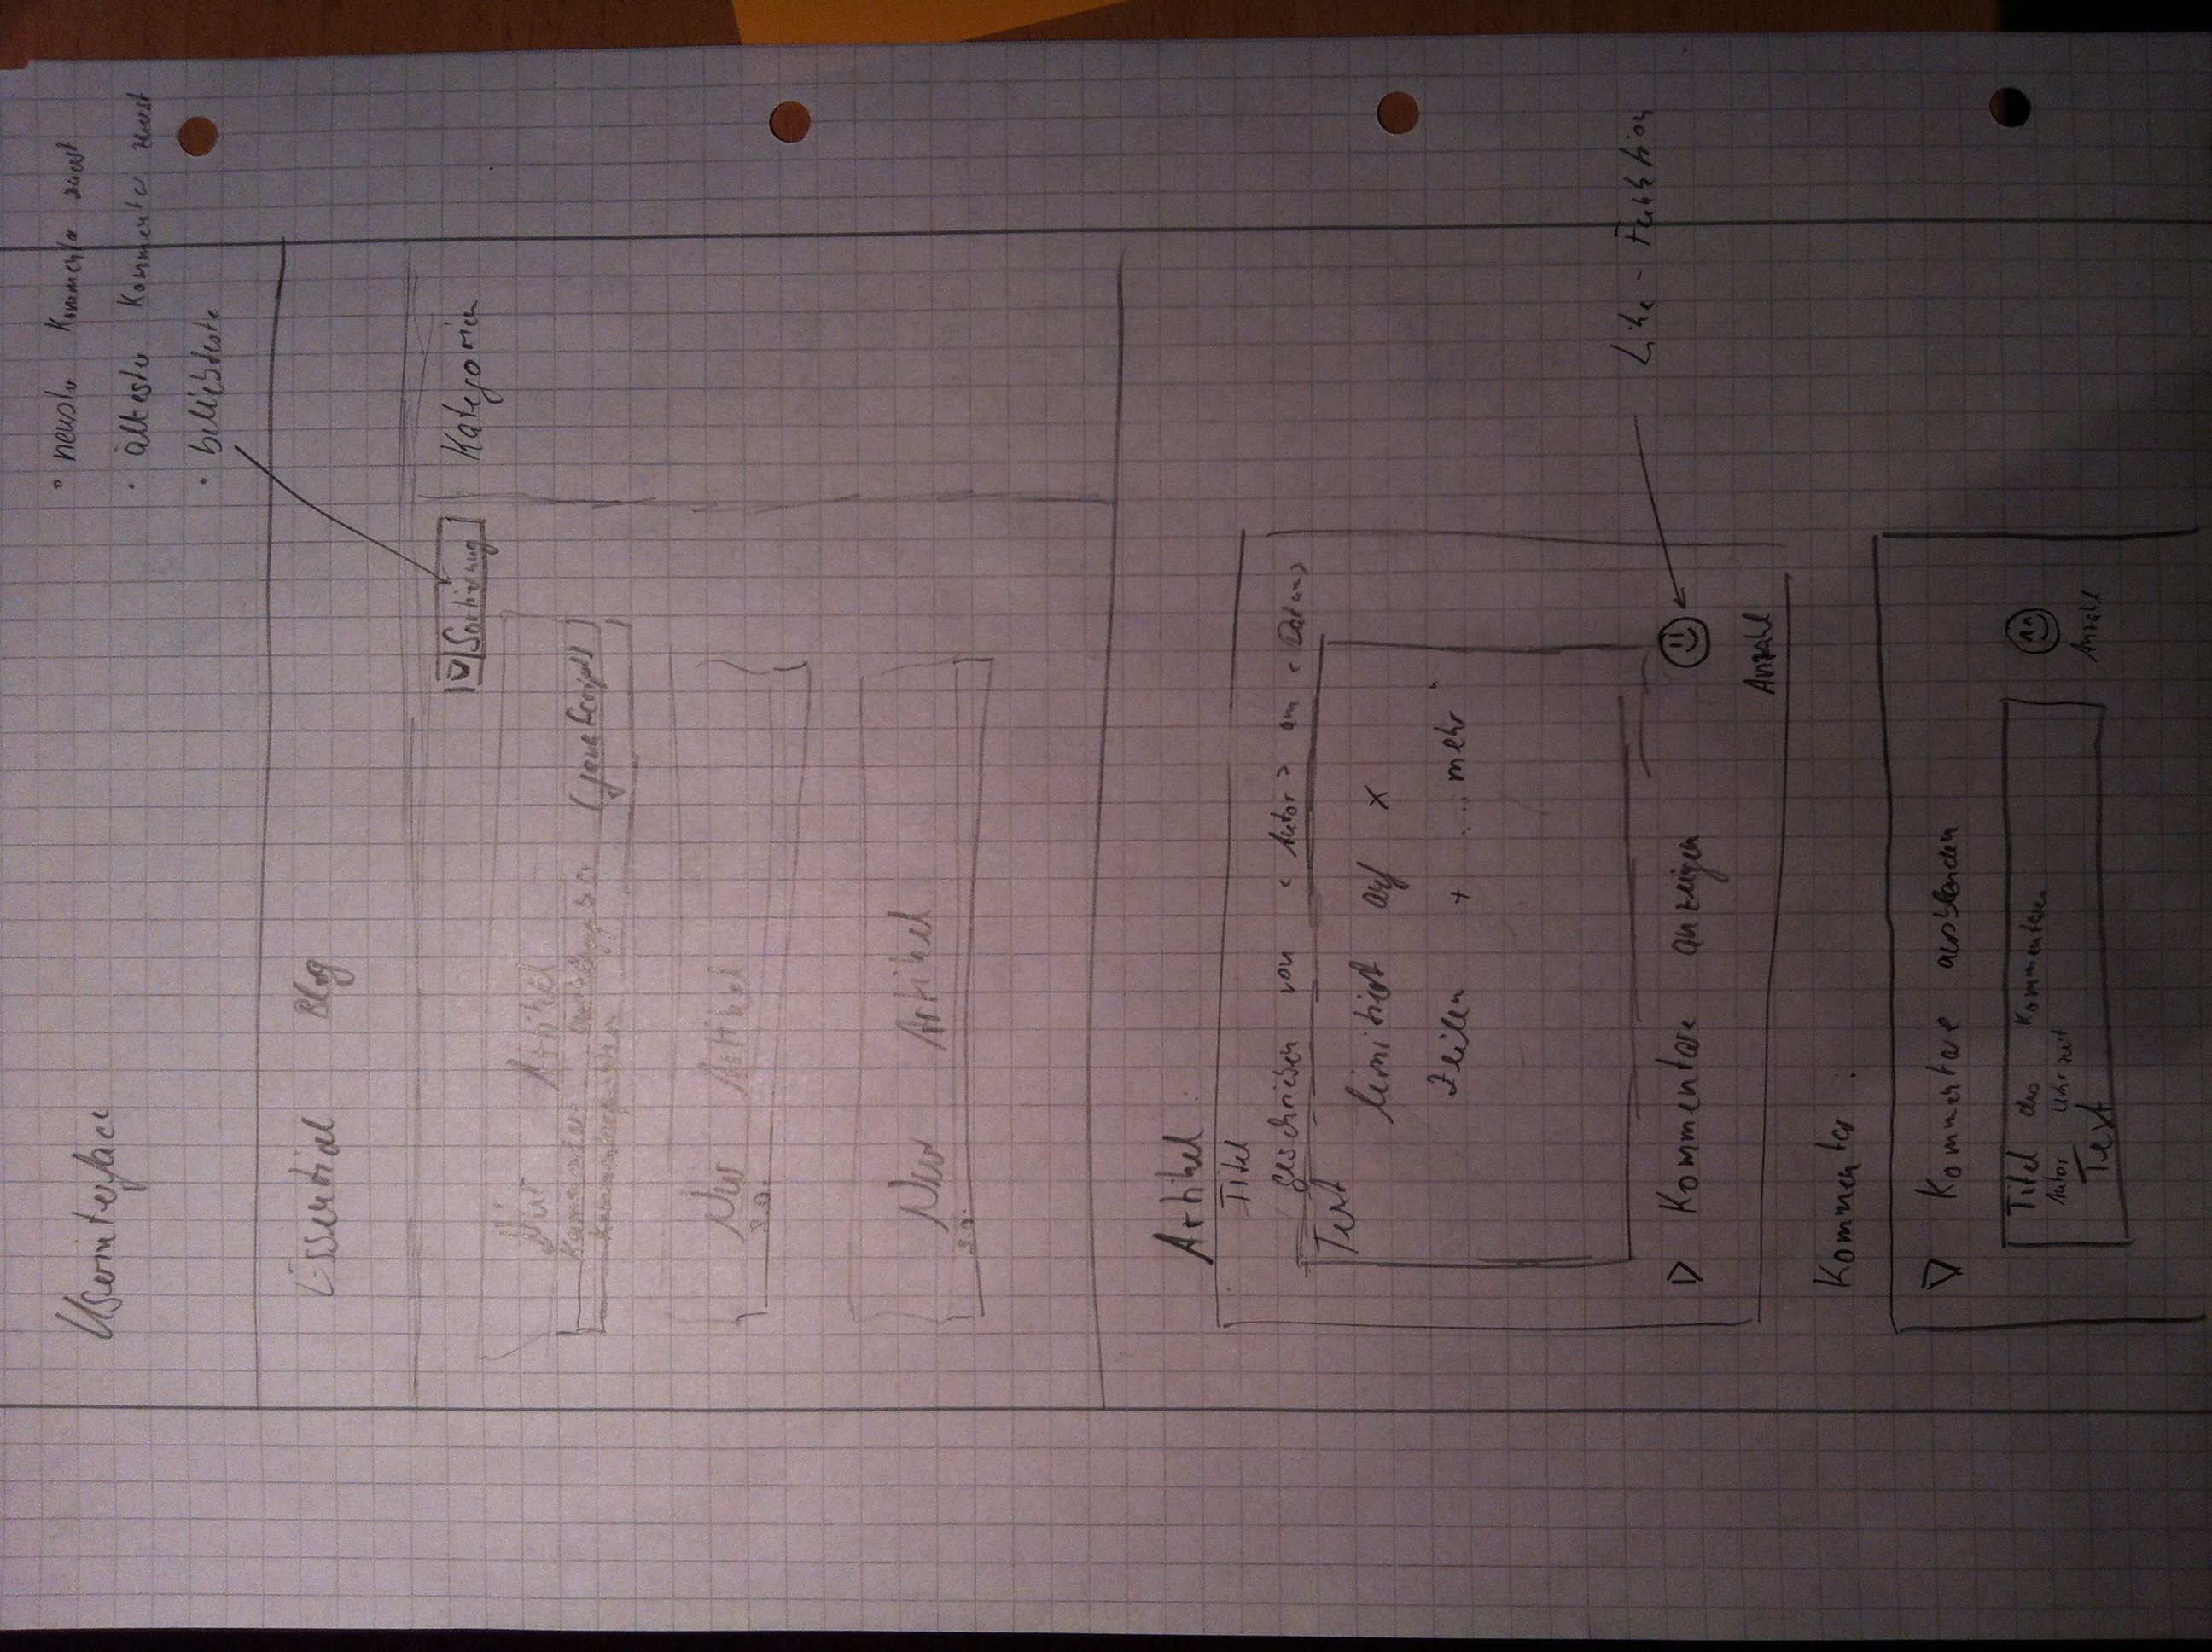 Userinterface
• neuster Kommentar zuerst
• ältester Kommentar zuerst
• beliebteste
Essential Blog
Sortierung
Kategorien
Artikel
Kommentare ausklappbar (JavaScript)
Artikel
s.o.
Artikel
s.o.
Artikel :
Titel
geschrieben von <Autor> am <Datum>
Text
limitiert auf x
Zeilen + ... mehr"
Kommentare anzeigen
Like - Funktion
Anzahl
Kommentar :
Kommentare ausblenden
Titel des Kommentares
Autor Uhrzeit
Text
Anzahl